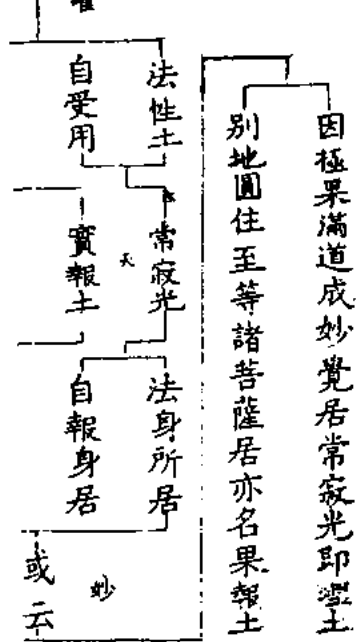 因極果滿道成妙覺居常寂光即淨土
別地圓住至等諸菩薩居亦名果報土
法性土
常寂光
法身所居
自受用
實報土
自報身居
天
妙
或云